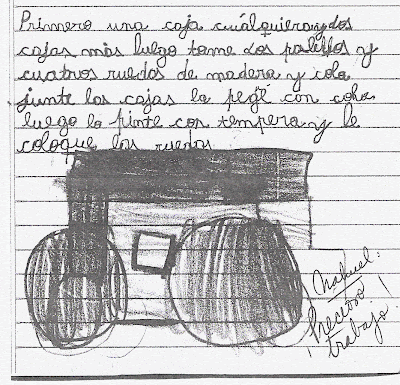 Primero una caja cuálquiera y dos
cajas más luego tome dos palillos y
cuatros ruedas de madera y cola
junte las cajas la pegé con cola
luego lo pinte con tempera y le
coloque las ruedas
Nahuel:
¡Precioso
trabajo!